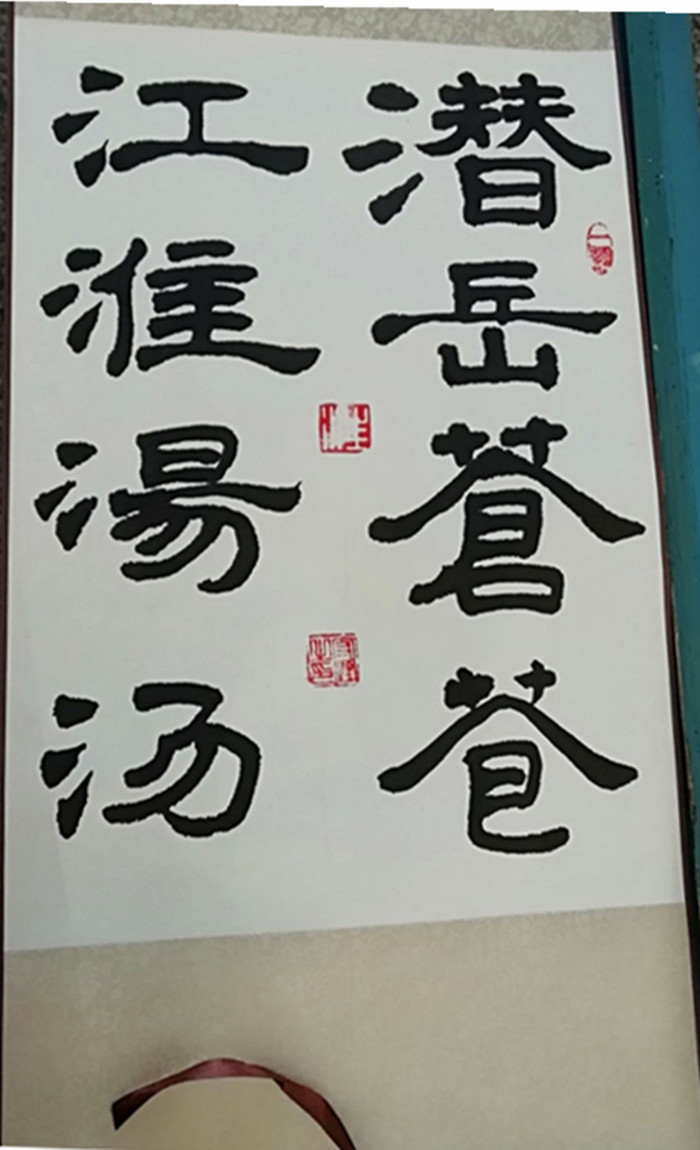 潜岳蒼苍
江淮湯汤